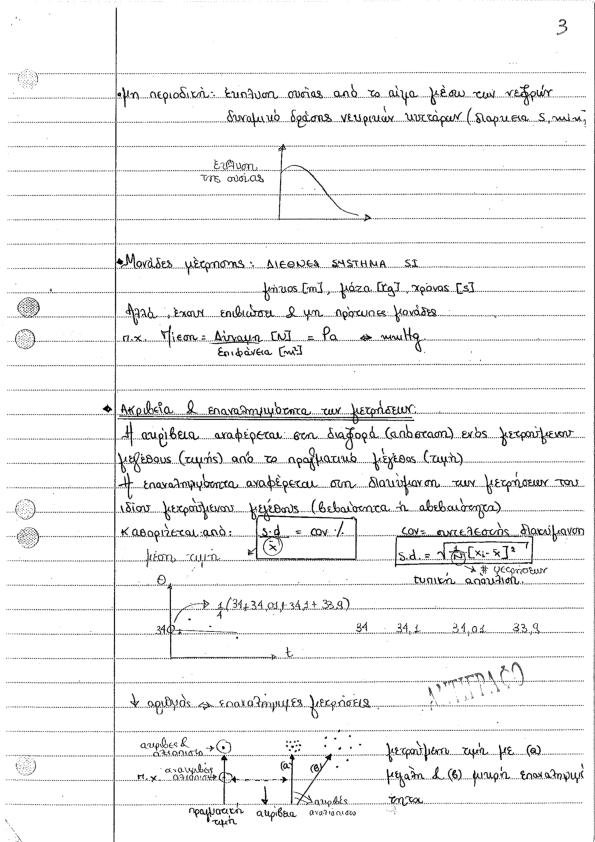 3
• Μη περιοδική: έκπλυση ουσίας από το αίμα μέσω των νεφρών
δυναμικό δράσης νευρικών κυττάρων (διάρκεια s, min,
έκπλυση
της ουσίας
Μονάδες μέτρησης: ΔΙΕΘΝΕΣ SYSTHMA SI
μήκος [m], μάζα [kg], χρόνος [s]
Αλλά, έχουν επιβιώσει & μη πρότυπες μονάδες
π.χ. Πίεση = Δύναμη [N] / επιφάνεια [m²] = Pa ⇔ mmHg
Ακρίβεια & επαναληψιμότητα των μετρήσεων:
Η ακρίβεια αναφέρεται στη διαφορά (απόσταση) ενός μετρούμενου
μεγέθους (τιμής) από το πραγματικό μέγεθος (τιμή)
Η επαναληψιμότητα αναφέρεται στη διακύμανση των μετρήσεων του
ίδιου μετρούμενου μεγέθους (βεβαιότητα ή αβεβαιότητα)
Καθορίζεται από: s.d / x̄ = cov % cov = συντελεστής διακύμανση
μέση τιμή s.d. = √1/N [xi - x̄]²
# μετρήσεων
τυπική απόκλιση.
Θ
1/4 (34+34,01+34,1+33,9)
34 34 34,1 34,01 33,9
t
↓ αριθμός → επαναλήψιμες μετρήσεις
ΑΝΤΙΓΡΑΦΟ
ακριβές &
αξιόπιστο (α) (β) μετρούμενη τιμή με (α)
π.χ. ανακριβές
αξιόπιστο μεγάλη & (β) μικρή επαναληψιμό
τητα
πραγματική
τιμή ακρίβεια ακριβές
αναξιόπιστο